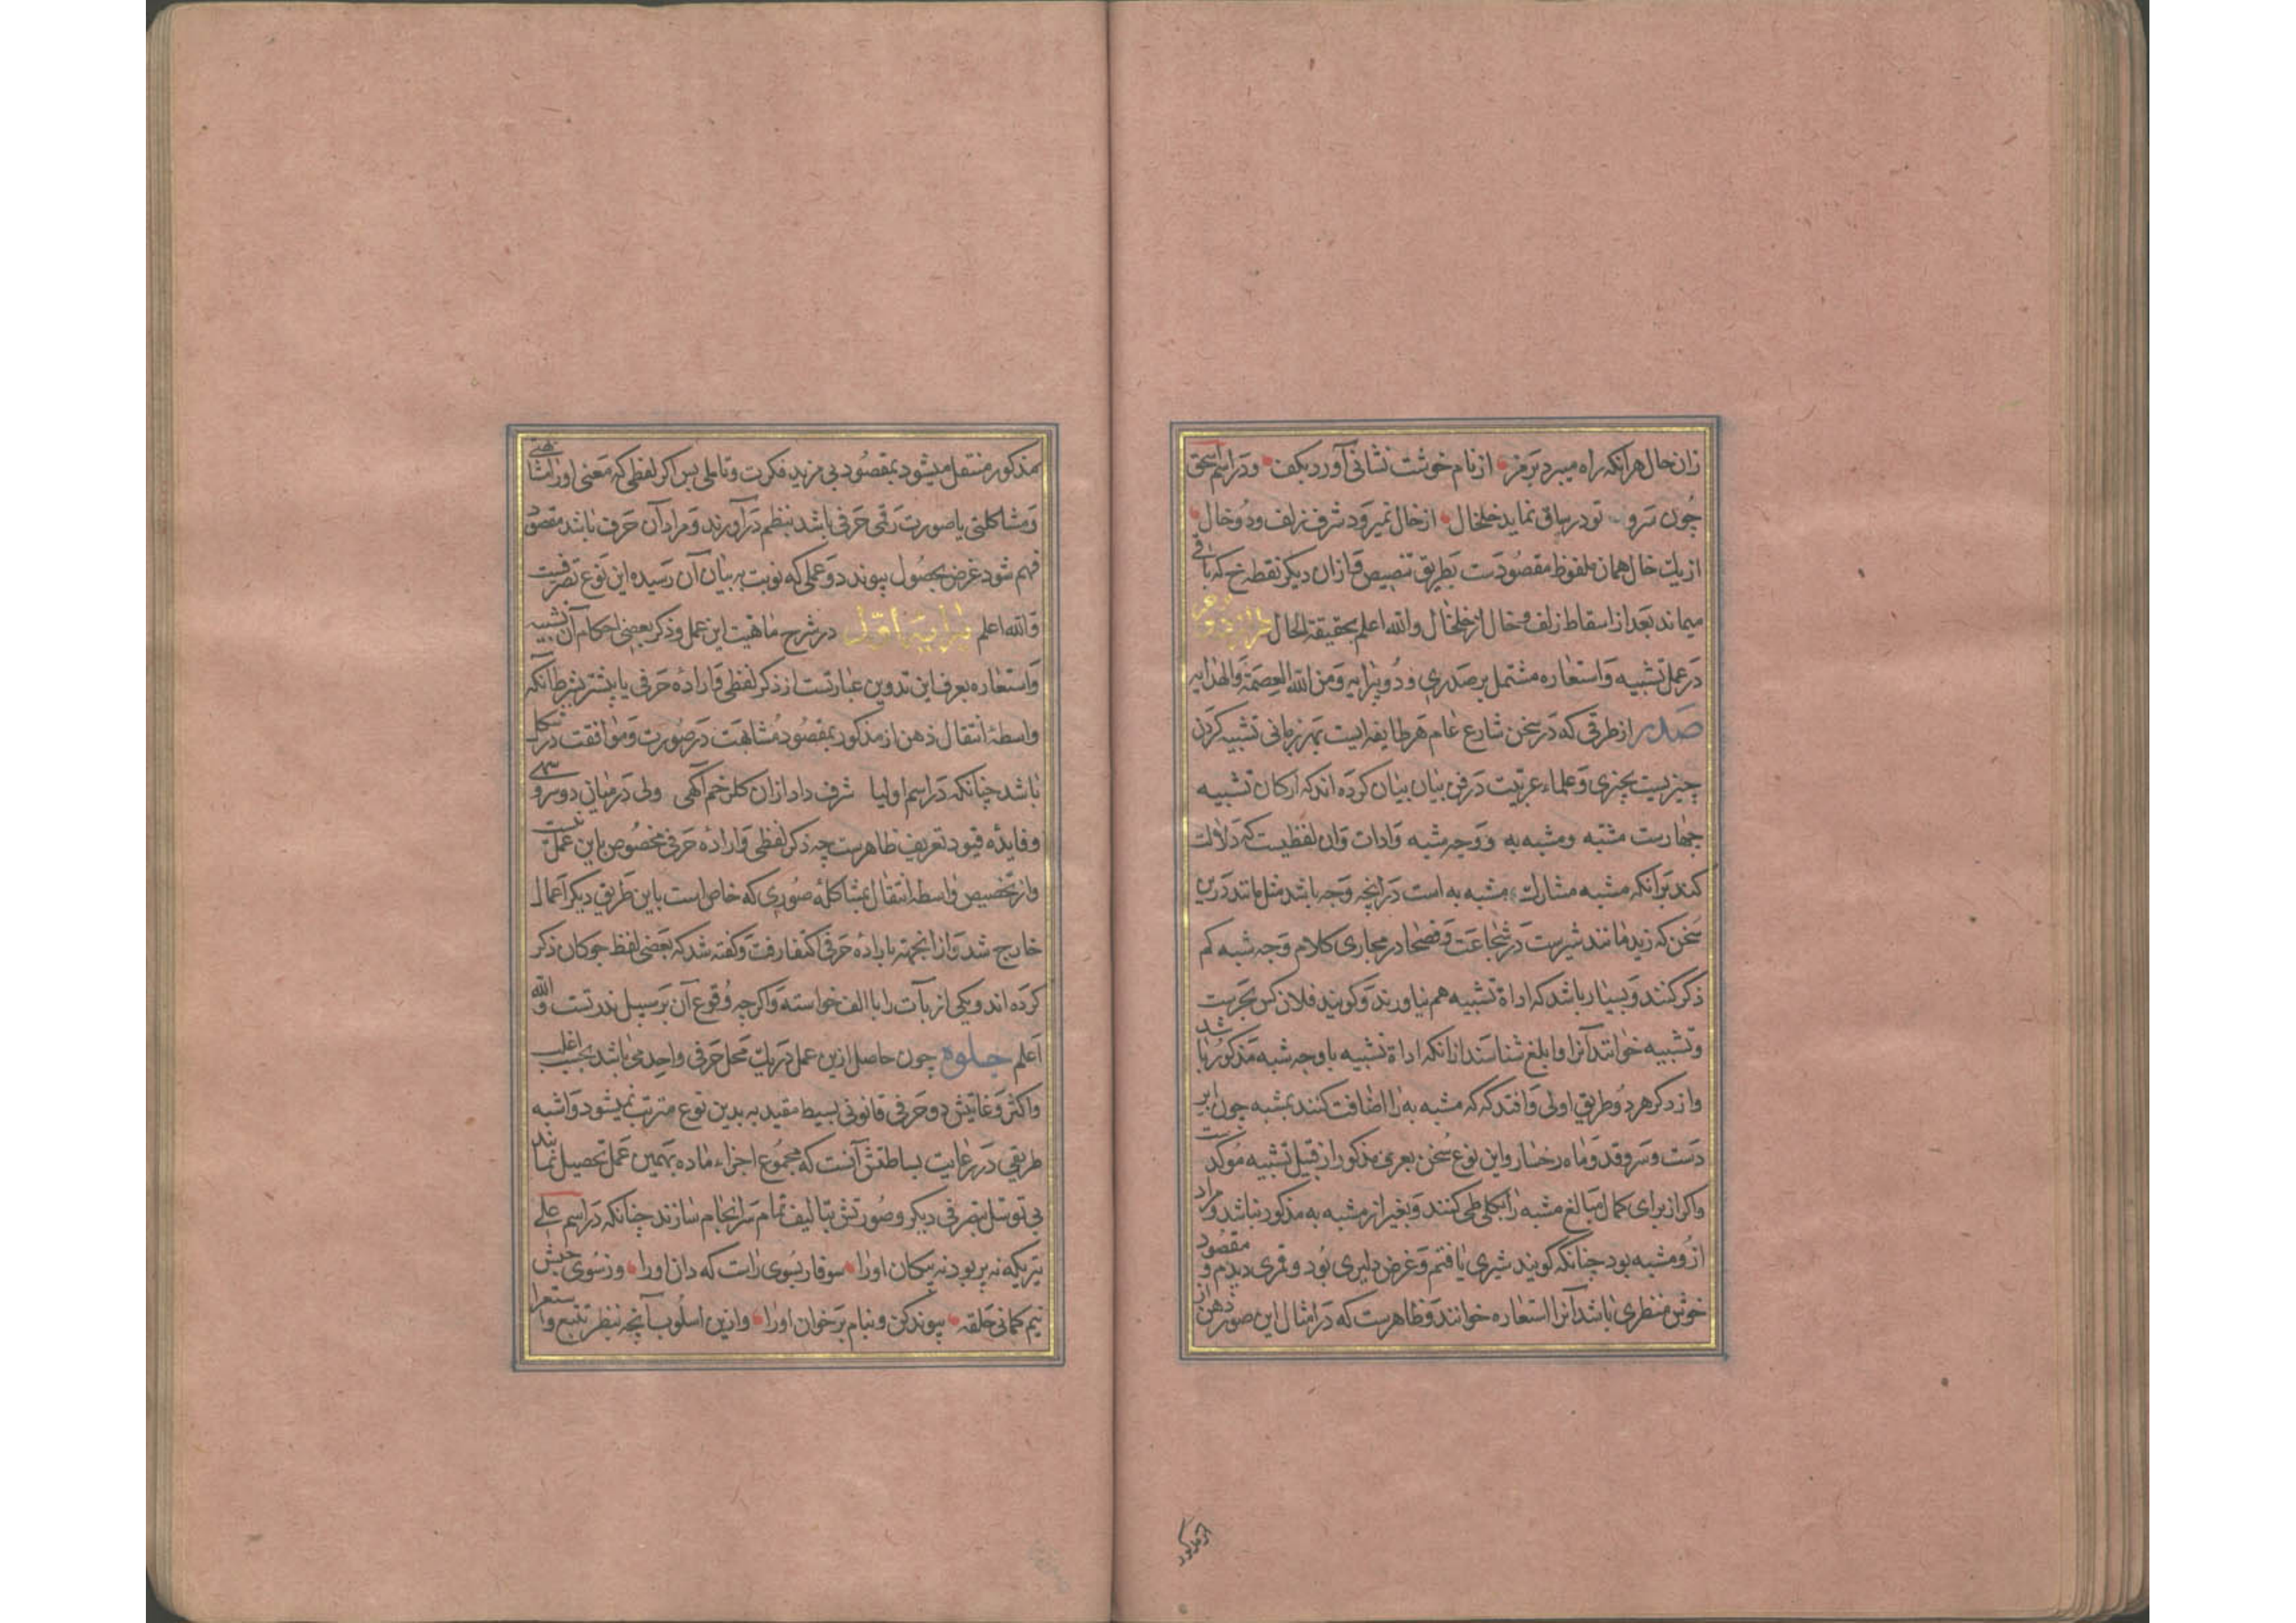 زان حال هرآنکه راه میبرد برمز از نام خوشت نشانی آورد بکف ودر اسم اسحق
چون سرو تو در ساق نماید خلخال از خال نمیرود شرف زلف ودو خال
از یک خال همان ملفوظ مقصودست بطریق تنصیص وازان دیگر نقطه خ که باقی
میماند بعد از اسقاط زلف وخال از خلخال والله اعلم بحقیقة الحال طراز دوم
در عمل تشبیه واستعاره مشتمل بر صدری ودو پرایه ومن الله العصمة والهدایه
صدر از طرقی که در سخن شارع عام هر طایفه ایست بهر زبانی تشبیه کردن
چیزیست بچیزی وعلماء عربیت در فن بیان بیان کرده اند که ارکان تشبیه
چهارست مشبه ومشبه به ووجه شبه وادات وان لفظیست که دلالت
کند برانکه مشبه مشارک مشبه به است در انچه وجه باشد مثل مانند درین
سخن که زید مانند شیرست در شجاعت وفصحا در مجاری کلام وجه شبه کم
ذکر کنند وبسیار باشد که اداة تشبیه هم نیاورند وکویند فلان کس بحریست
وتشبیه خوانند آنرا وابلغ شناسند ازانکه اداة تشبیه یا وجه شبه مذکور باشد
واز ذکر هر دو طریق اولی وافتد که که مشبه به را اضافت کنند بمشبه چون ابر
دست وسرو قد وماه رخسار واین نوع سخن بعری مذکور از قبیل تشبیه موکدست
واکر از برای کمال مبالغه مشبه را بکلی طی کنند وبغیر از مشبه به مذکور نباشد ومراد
ازو مشبه بود چنانکه کویند شیری یافتم وغرض دلیری بود وقمری دیدم ومقصود
خوش منظری باشد آنرا استعاره خوانند وظاهرست که در امثال این صور ذهن از
مذکور منتقل میشود بمقصود بی مزید فکرت وتاملی پس اکر لفظی که معنی اورا مشابهتی
ومشاکلتی با صورت رقمی حرفی باشد بنظم درآورند ومراد آن حرف باشد مقصود
فهم شود غرض بحصول پیوندد وعملی که نوبت به بیان آن رسیده این نوع تصرفیست
والله اعلم پرایه اول در شرح ماهیت این عمل وذکر بعضی احکام آن تشبیه
واستعاره بعرف این تدوین عبارتست از ذکر لفظی وارادهٔ حرفی یا بیشتر بشرط آنکه
واسطهٔ انتقال ذهن از مذکور بمقصود مشابهت در صورت وموافقت در شکل
باشد چنانکه در اسم اولیا شرف داد ازان کلرخم آکهی ولی در میان دو سرو سهی
وفایدهٔ قیود تعریف ظاهرست چه ذکر لفظی وارادهٔ حرفی مخصوص باین عمل نیست
واز تخصیص واسطهٔ انتقال بمشاکلهٔ صوری که خاص است باین طریق دیکر اعمال
خارج شد واز انجهت بارادهٔ حرفی اکتفا رفت وکفته شد که بعضی لفظ جوکان ذکر
کرده اند ویکی از بآت را با الف خواسته واکرچه وقوع آن بر سبیل ندرتست والله
اعلم جلوه چون حاصل ازین عمل در یک محل حرفی واحد می باشد بحسب اغلب
واکثر وغایتش دو حرفی قانونی بسیط مقید به بدین نوع مترتب نمیشود واشبه
طریقی در رعایت بساطتش آنست که مجموع اجزاء ماده بهمین عمل تحصیل نمایند
بی توسل بتصرفی دیکر وصورتش بتالیف تمام سرانجام سازند چنانکه در اسم علی
تیریکه نه پر بود نه پیکان اورا سوفار بسوی راست که دان اورا وز سوی چپش
نیم کمانی حلقه پیوند کن وبنام برخوان اورا وازین اسلوب آنچه بنظر تتبع واستعرا